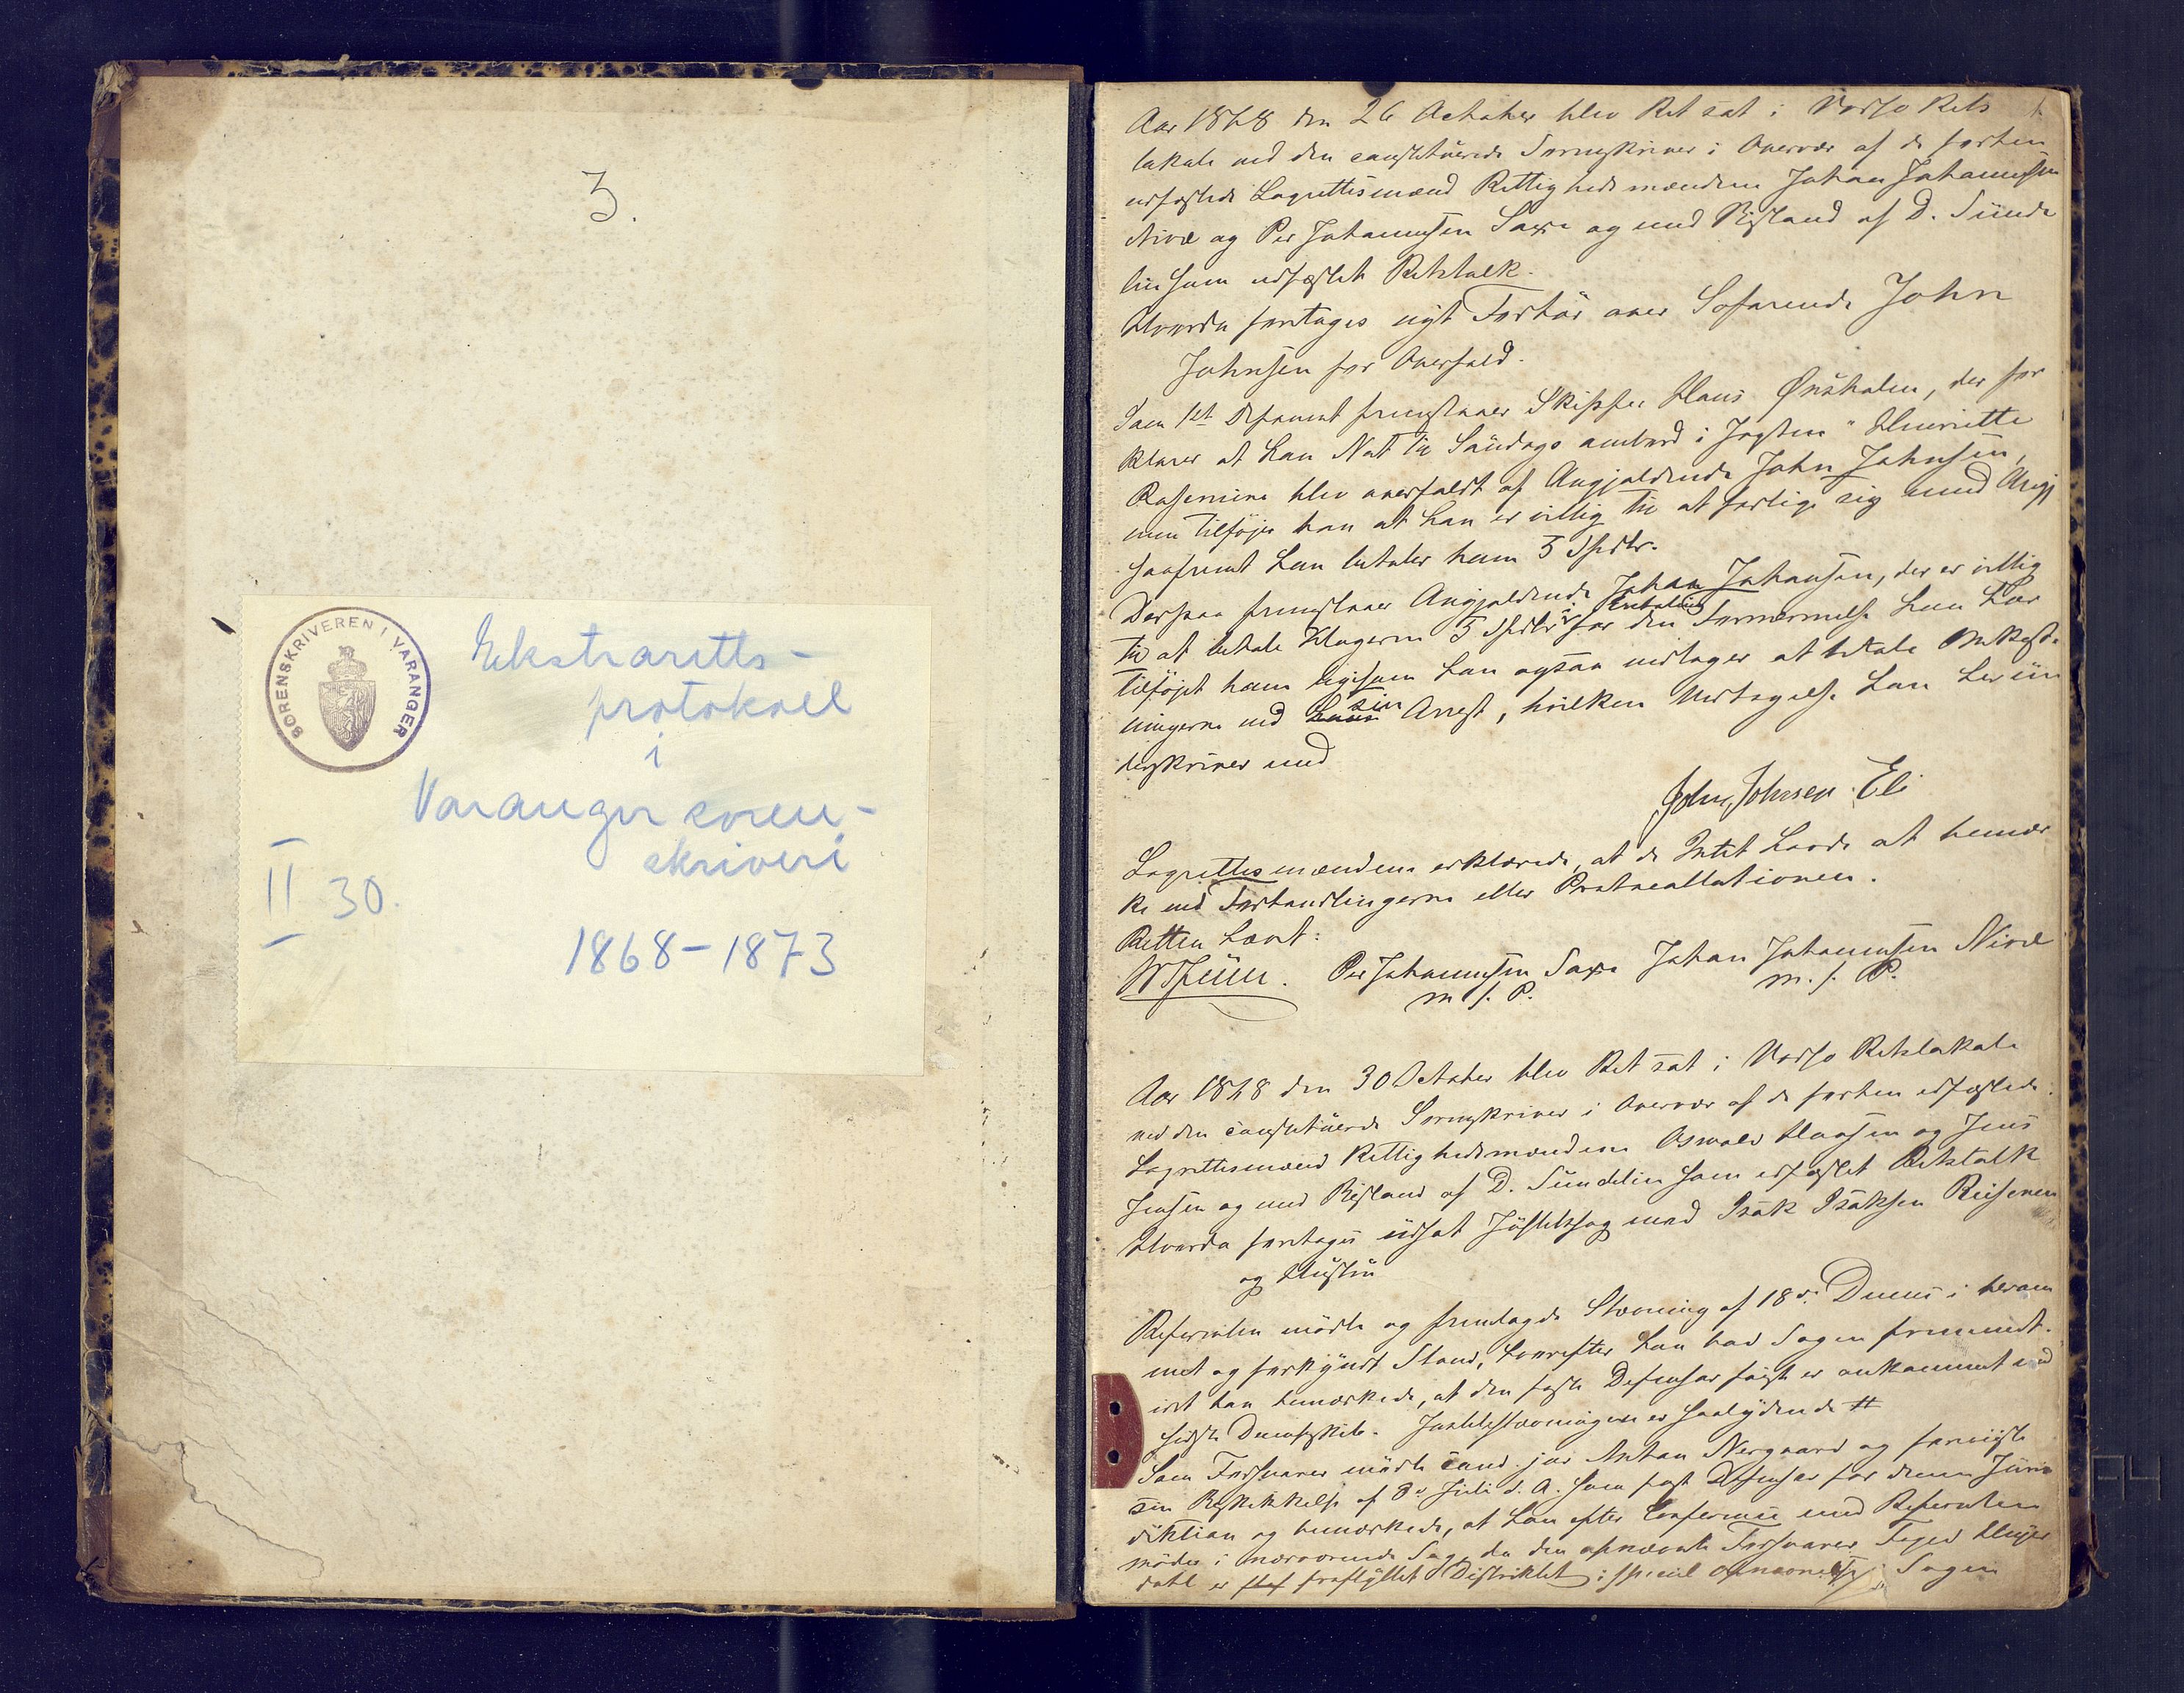 3.
SORENSKRIVEREN I VARANGER
Ekstraretts-
protokoll
i
Varanger soren-
skriveri
II 30.
1868-1873
Aar 1868 den 26 October blev Ret sat i Vadsø Rets
lokale ved den constituerede Sorenskriver i Overvær af de forhen
edfæstede Lagrettesmænd Rettighedsmændene Johan Johannesen
Nivæ og Per Johannesen Saxe og med Bistand af D. Sunde
lin som edfæstet Rettstolk.
Hvorda foretoges nyt Forhør over Søfarende John
Johnsen for Overfald.
Som 1ste Deponent fremstaaer Skipper Hans Ørsholm, der for
klarer at han Nat til Søndags ombord i Jagten "Henriette
Rasmine blev overfaldt af Angjældende John Johnsen,
men tilføjer han at han er villig til at forlige sig med Angj
saafremt han betaler ham 5 Spdlr.
Derpaa fremstaaer Angjældende Johan Johansen, der er villig
til at betale Klageren 5 Spdlr for den Fornærmelse han har
tilføjet ham ligesom han ogsaa vedtager at betale Omkost-
ningerne ved hans sin Arrest, hvilken Vedtagelse han her un
derskriver med
John Johnsen Eli
Lagrettesmændene erklærede, at de Intet havde at bemær
ke ved Forhandlingerne eller Protocollationen.
Retten hævet:
Per Johannesen Saxe Johan Johannesen Nivæ
m. f. P. m. f. P.
Aar 1868 den 30 October blev Ret sat i Vadsø Retslokale
ved den constituerede Sorenskriver i Overvær af de forhen edfæstede
Lagrettesmænd Rettighedsmændene Oswald Hansen og Jens
Jensen og med Bistand af D. Sundelin som edfæstet Retstolk
Hvorda foretoges udsat Justitssag mod Isak Isaksen Reisenen
og Hustru
Referenten mødte og fremlagde Stævning af 18de Dennes i beram
met og forkyndt Stand, hvorefter han bad Sagen fremmet.
idet han bemærkede, at den faste Defensor først er ankommet med
sidste Dampskib. Justitsstævningen er saalydende #
Som Forsvarer mødte cand. jur Anton Nergaard og foreviste
sin Beskikkelse af 8de Juli d. A. som fast Defensor for denne Juris
diktion og bemærkede, at han efter Conference med Referenten
møder i nærværende Sag, da den opnævnte Forsvarer Foged Meyer
dahl er fraflyttet Distriktet i speciel Opnævnelse i Sagen